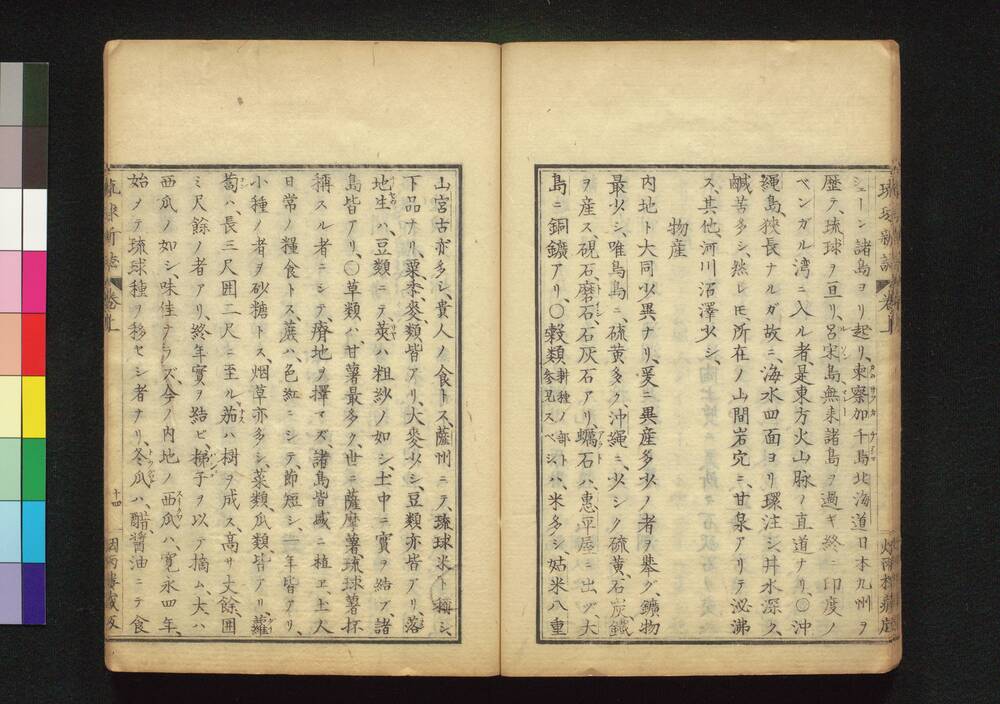 シエーン諸島ヨリ起リ、東察加千島北海道日本九州ヲ
歴テ、琉球ヲ亘リ、呂宋島無来諸島ヲ過ギ、終ニ印度ノ
ベンガル湾ニ入ル者、是東方火山脉ノ直道ナリ、〇沖
縄島、狹長ナルガ故ニ、海水四面ヨリ環注シ、井水深ク、
鹹苦多シ、然レ𪜈、所在ノ山間岩穴ニ、甘泉アリテ泌沸
ス、其他、河川沼澤少シ、
物産
内地ト大同少異ナリ、爰ニ異産多少ノ者ヲ擧グ、鑛物
最少シ、唯鳥島ニ、硫黄多ク、沖縄ニ、少シク硫黄、石炭、鐵
ヲ産ス、硯石、磨石、石灰石アリ、蠣石ハ、惠平屋ニ出ヅ、大
島ニ銅鑛アリ、〇穀類耕種ノ部ト参見スベシハ、米多シ、姑米八重
山宮古亦多シ、貴人ノ食トス、薩州ニテ、琉球米ト稱シ、
下品ナリ、粟、黍、麥類皆アリ、大麥少シ、豆類亦皆アリ、落
地生ハ、豆類ニテ、莢ハ粗紗ノ如シ、土中ニ實ヲ結ブ、諸
島皆アリ、〇草類ハ、甘薯最多ク、世ニ薩摩薯琉球薯抔
稱スル者ニシテ、瘠地ヲ擇マズ、諸島皆盛ニ植ヱ、土人
日常ノ糧食トス、蔗ハ、色紅ニシテ、節短シ、一年皆アリ、
小種ノ者ヲ砂糖トス、烟草亦多シ、菜類、瓜類、皆アリ、蘿
蔔ハ、長三尺囲二尺ニ至ル、茄ハ樹ヲ成ス、高サ丈餘、囲
ミ尺餘ノ者アリ、終年實ヲ結ビ、梯子ヲ以テ摘ム、大ハ
西瓜ノ如シ、味佳ナラズ、今ノ内地ノ西瓜ハ、寛永四年、
始メテ琉球種ヲ移セシ者ナリ、冬瓜ハ、醋醤油ニテ食
卷上
十四